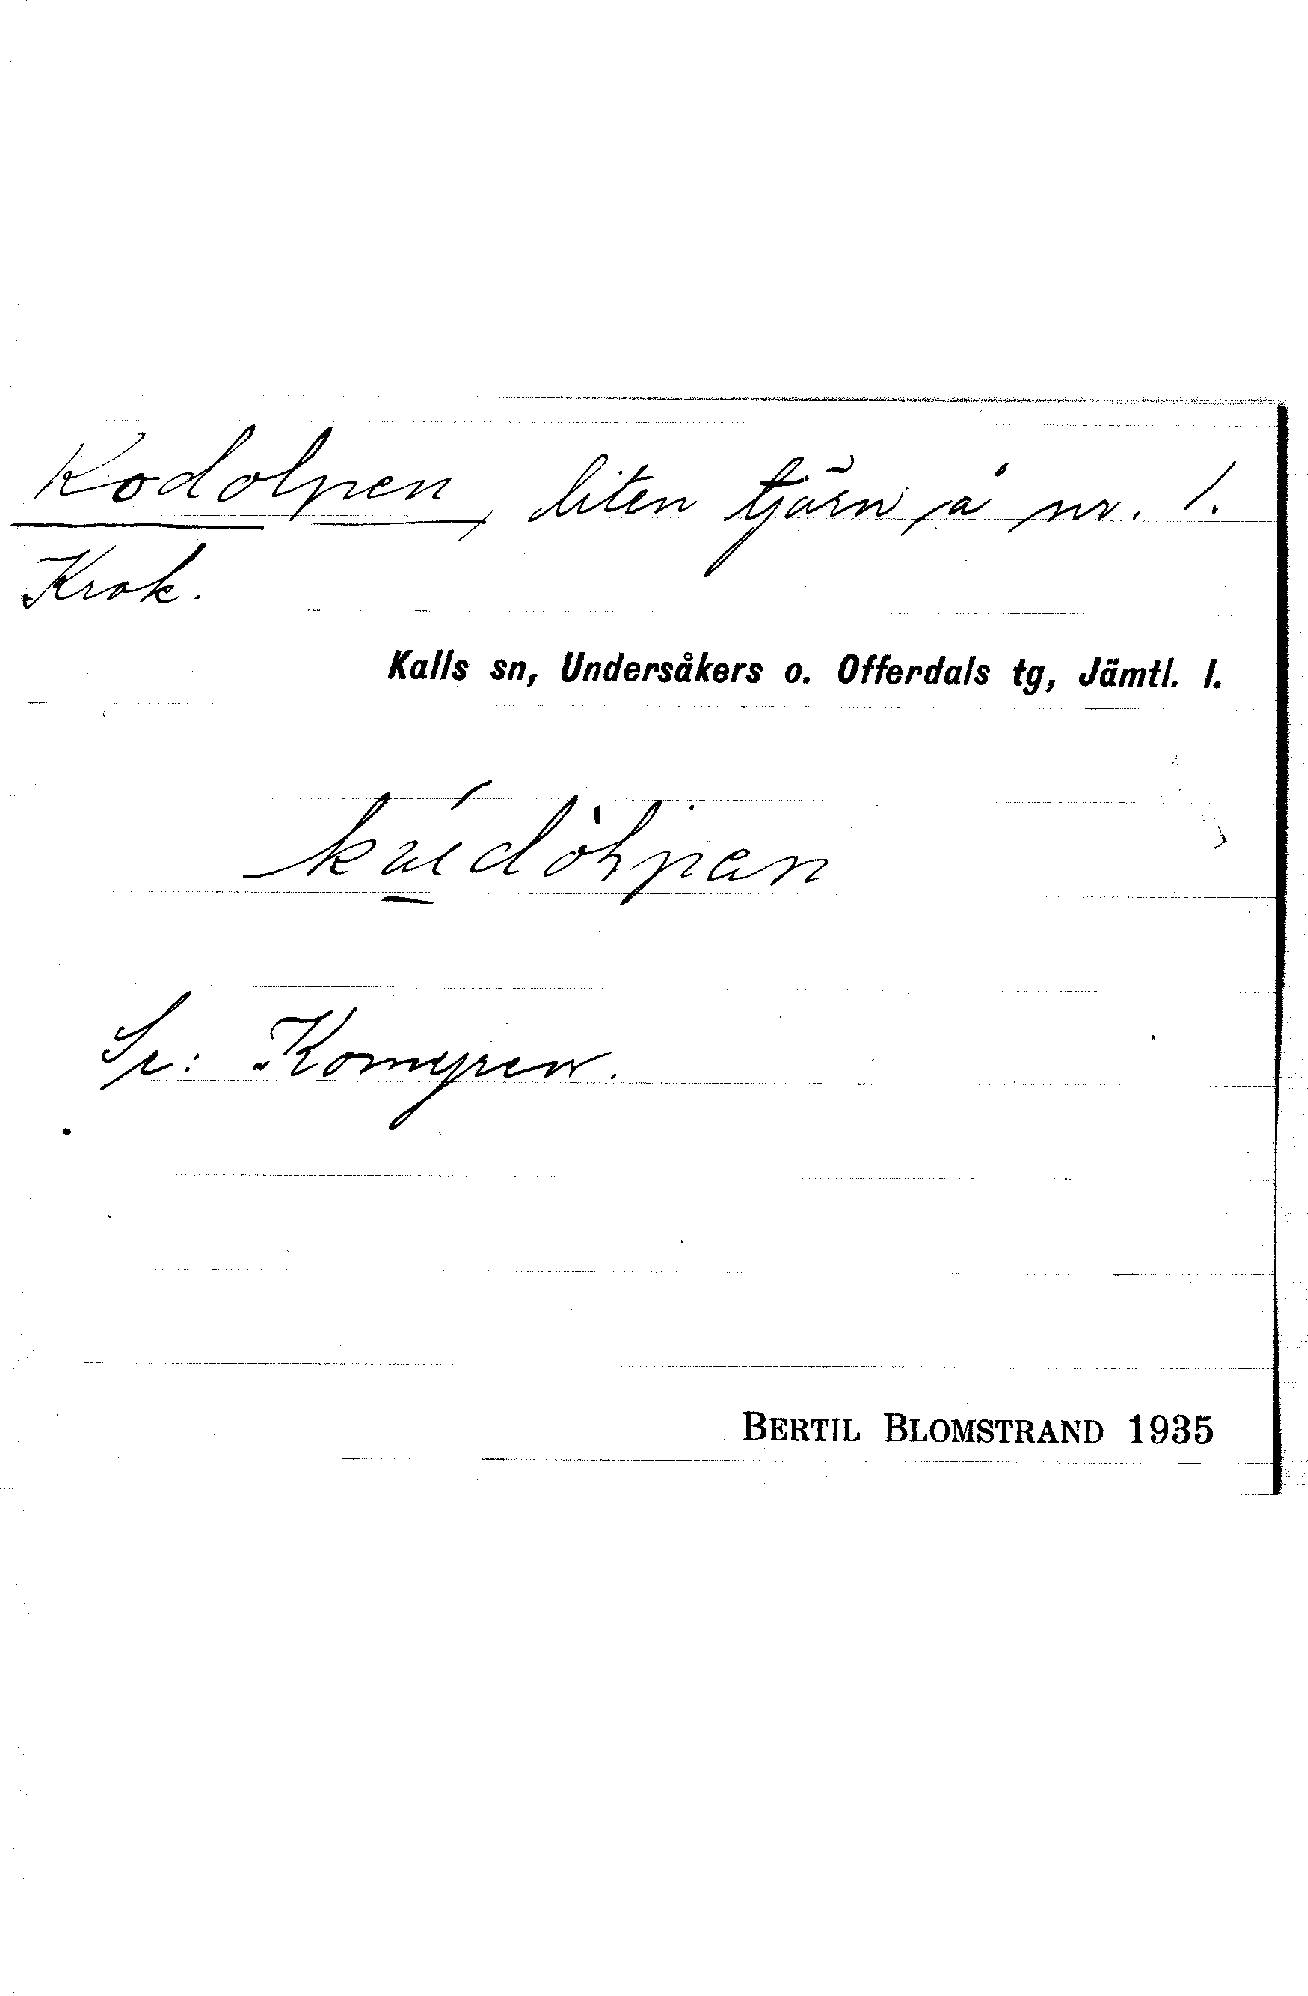 Kodolpen, liten tjärn å nr. 1.
Krok.
Kalls sn, Undersåkers o. Offerdals tg, Jämtl. l.
Se: Komyren.
BERTIL BLOMSTRAND 1935